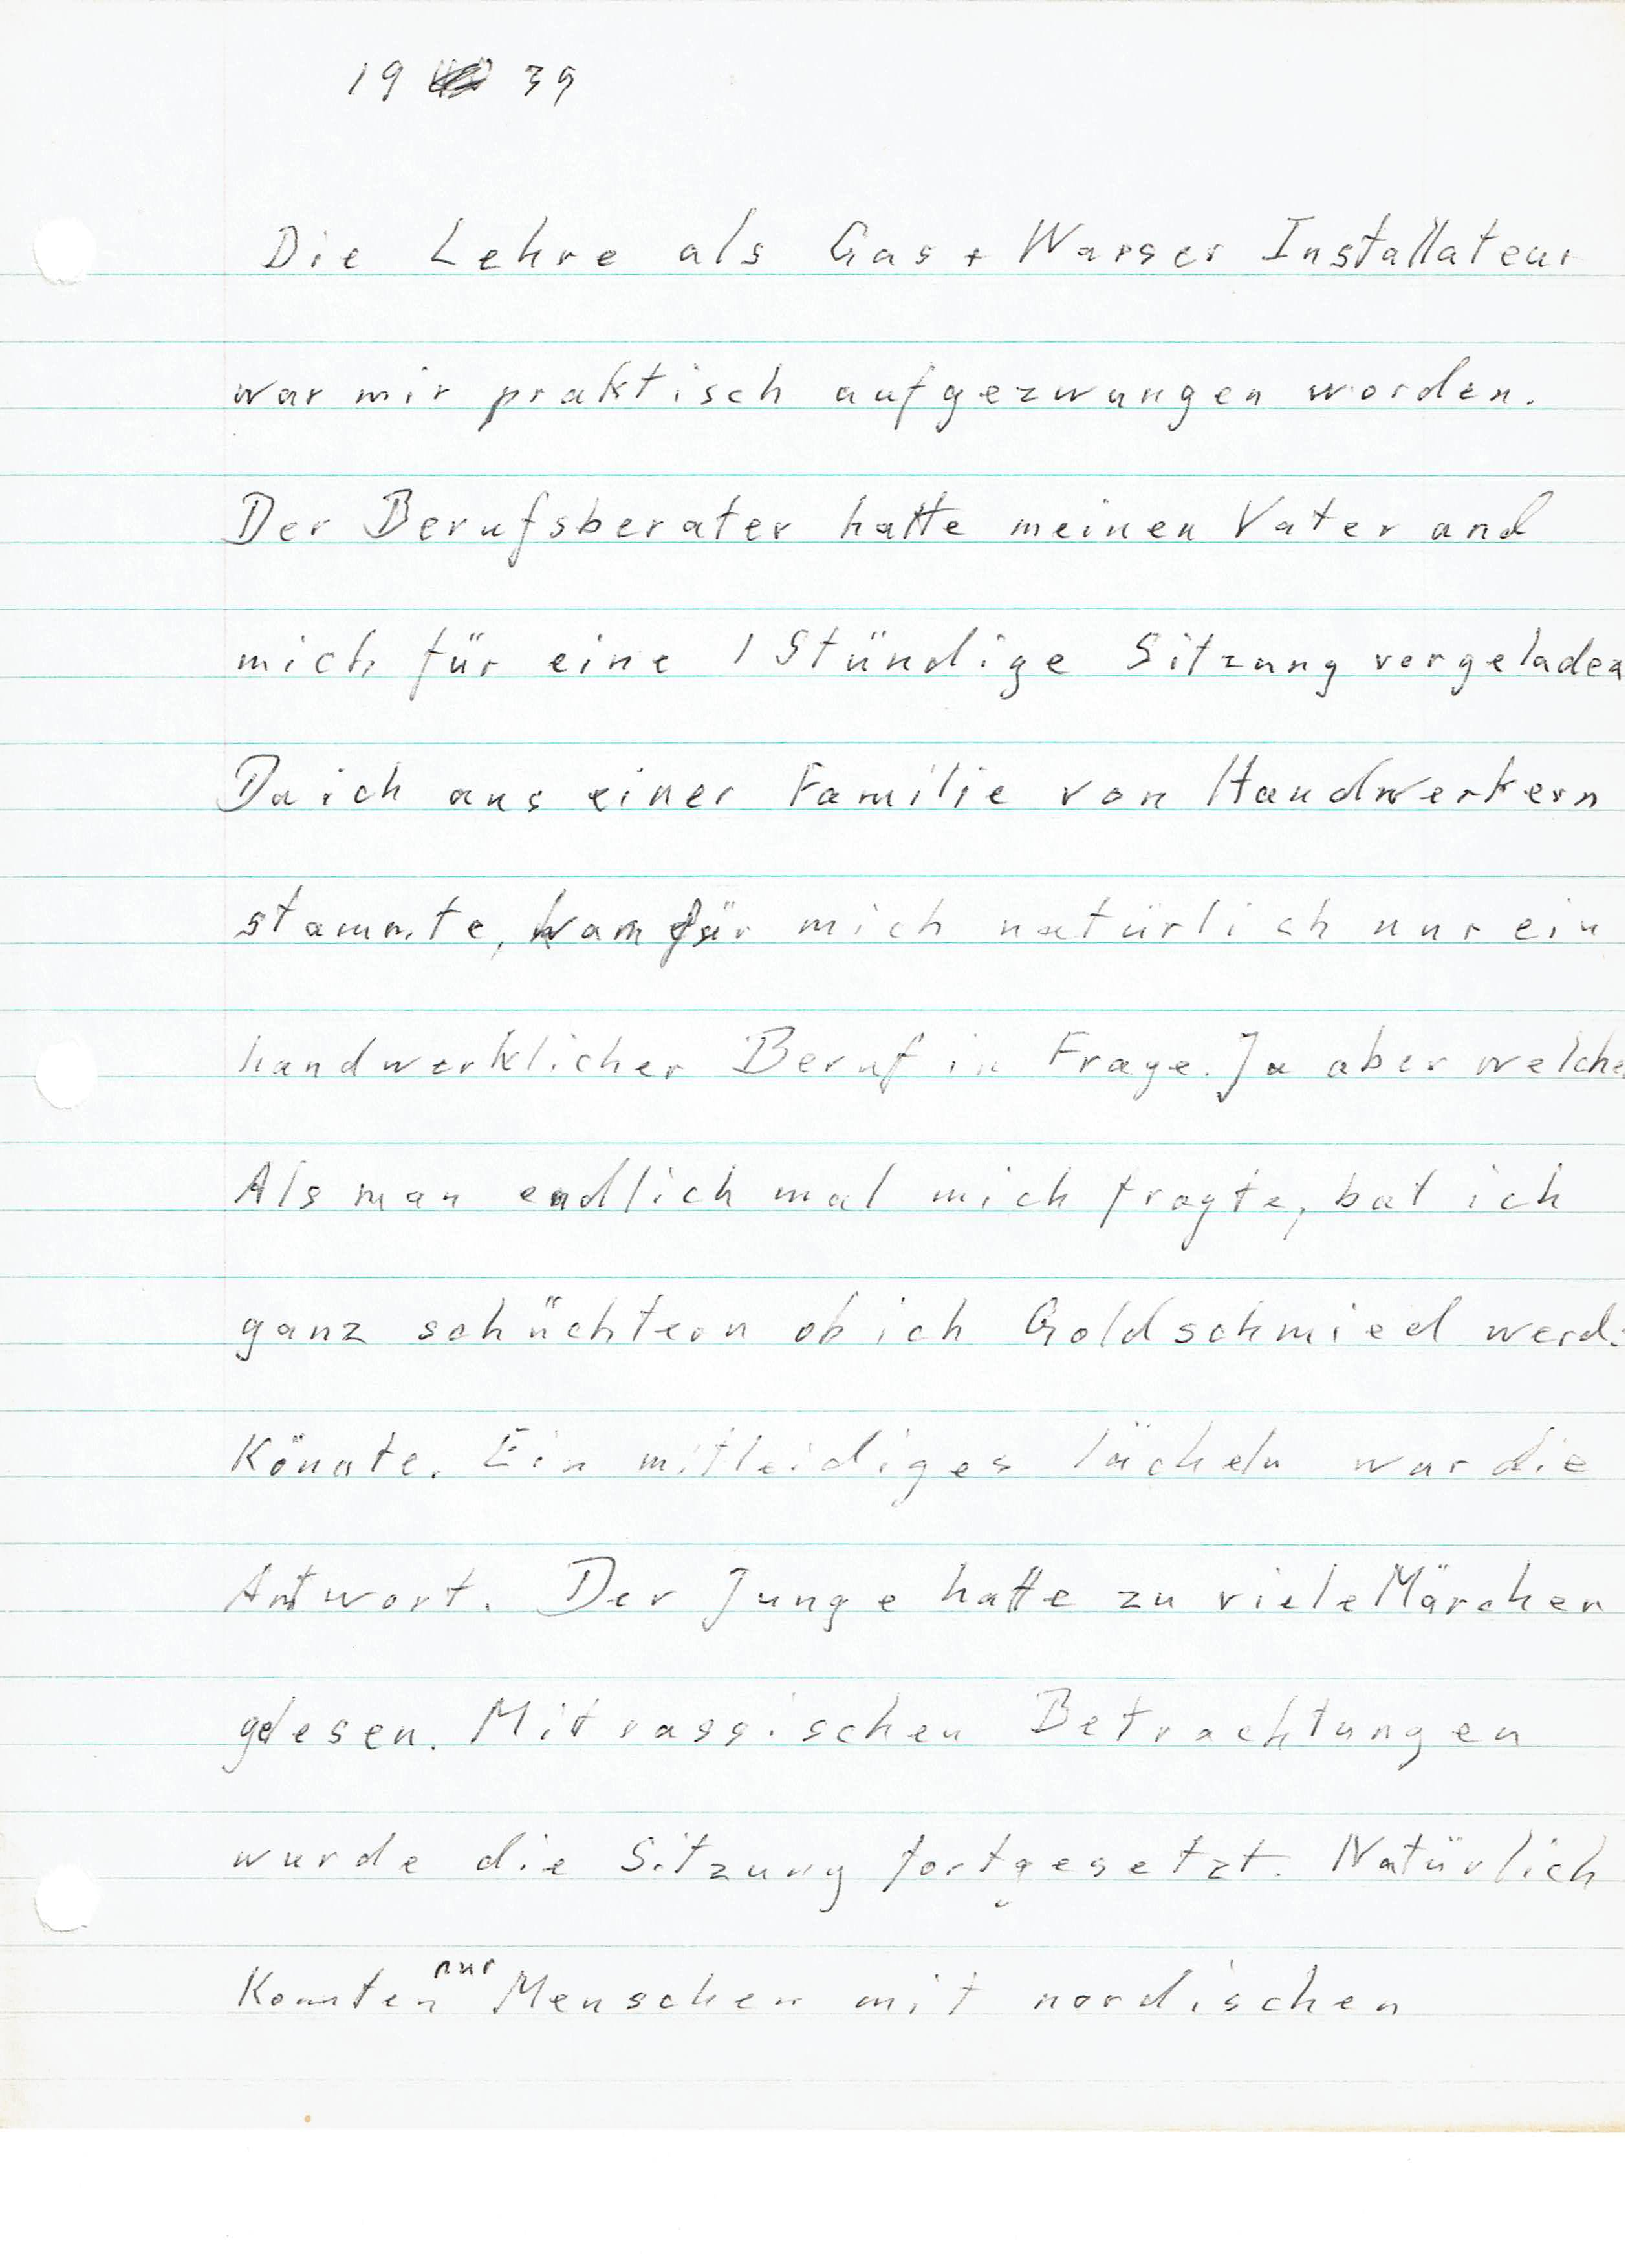 19 39
Die Lehre als Gas + Wasser Installateur
war mir praktisch aufgezwungen worden.
Der Berufsberater hatte meinen Vater und
mich für eine 1 Stündige Sitzung vorgeladen
Da ich aus einer Familie von Handwerkern
stammte, kam für mich natürlich nur ein
handwerklicher Beruf in Frage. Ja aber welche
Als man endlich mal mich fragte, bat ich
ganz schüchtern ob ich Goldschmied werde
Könnte. Ein mitleidiges lächeln war die
Antwort. Der Junge hatte zu viele Märchen
gelesen. Mit rassischen Betrachtungen
wurde die Sitzung fortgesetzt. Natürlich
Konnten nur Menschen mit nordischen